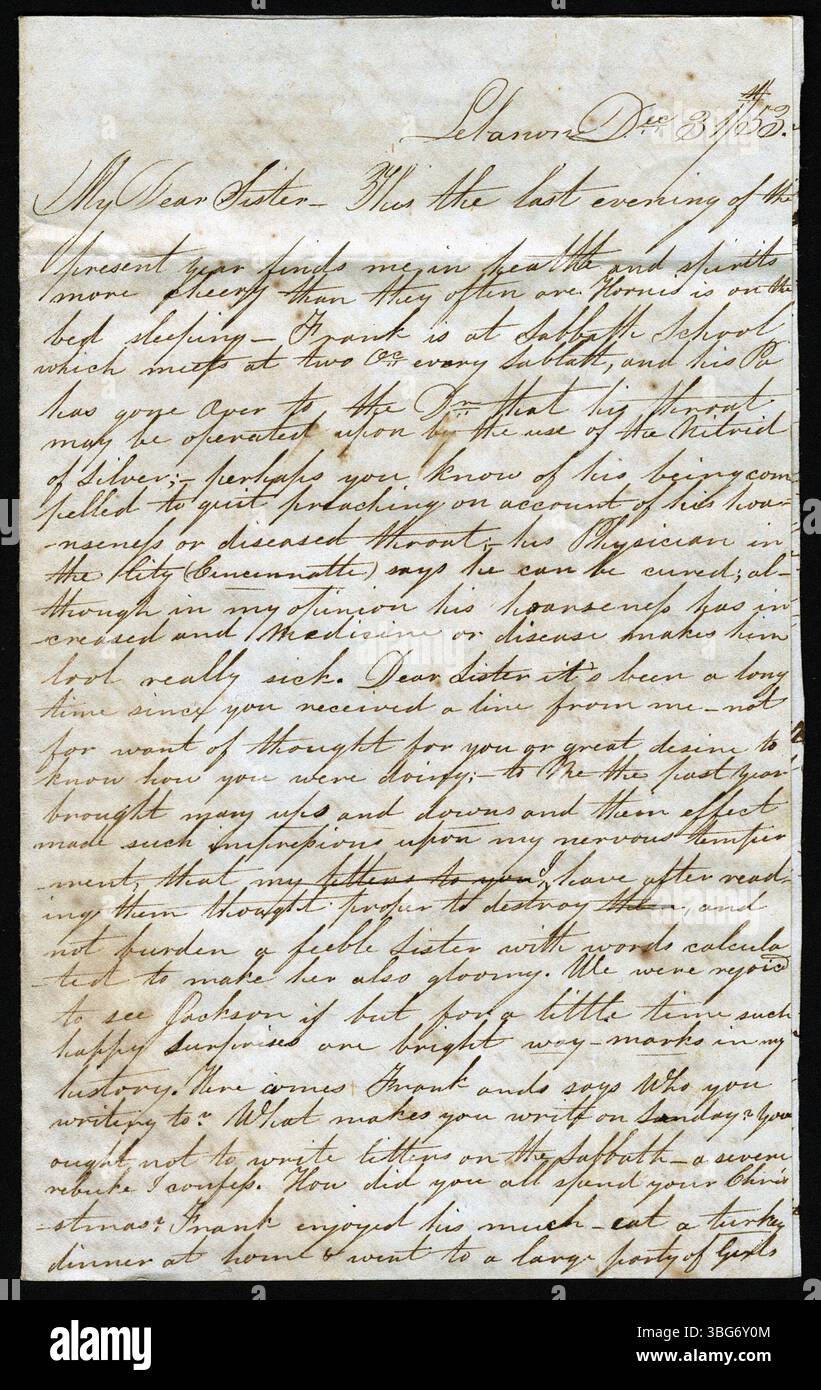 Lebanon Dec 31st/53.
My Dear Sister_ This the last evening of the
present year finds me in health and spirits
more cheery than they often are. Horries is on the
bed sleeping_ Frank is at Sabbath School
which meets at two Oc. every Sabbath, and his Pa
has gone over to the Dr. that his throat
may be operated upon by the use of the Nitrid
of Silver;- perhaps you know of his being com
pelled to quit preaching on account of his hoar-
-seness or diseased throat;- his Physician in
the City (Cincinnatti) says he can be cured; al-
though in my opinion his hoarseness has in
-creased and medisine or disease makes him
look really sick. Dear Sister it's been a long
time since you received a line from me_not
for want of thought for you or great desire to
know how you were doing;- to me the past year
brought many ups and downs and them effect
made such impressions upon my nervous temper
-ment, that my letters to you I, have after read-
ing them thought proper to destroy them, and
not burden a feeble sister with words calcula
-ted to make her also gloomy. We were rejoic'd
to see Jackson if but for a little time such
happy surprises are bright way-marks in my
history! Here comes Frank and says Who you
writing to? What makes you write on Sunday? You
ought not to write letters on the Sabbath_a severe
rebuke I confess. How did you all spend your Chri
-stmas? Frank enjoyed his much_eat a turkey
dinner at home & went to a large party of Girls
alamy
Image ID: 3BG6Y0M
www.alamy.com